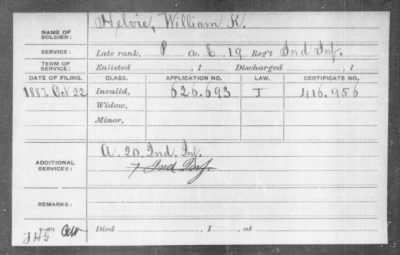 NAME OF SOLDIER: Helvie, William K.
SERVICE: Late rank, P Co. C, 19 Reg't Ind Inf.
TERM OF SERVICE: Enlisted , 1 Discharged , 1
DATE OF FILING. CLASS. APPLICATION NO. LAW. CERTIFICATE NO.
1887. Oct 22 Invalid, 626.693 J 416.956
Widow,
Minor,
ADDITIONAL SERVICES: A. 20. Ind. Inf.
7 Ind Inf.
REMARKS:
Died , 1 , at